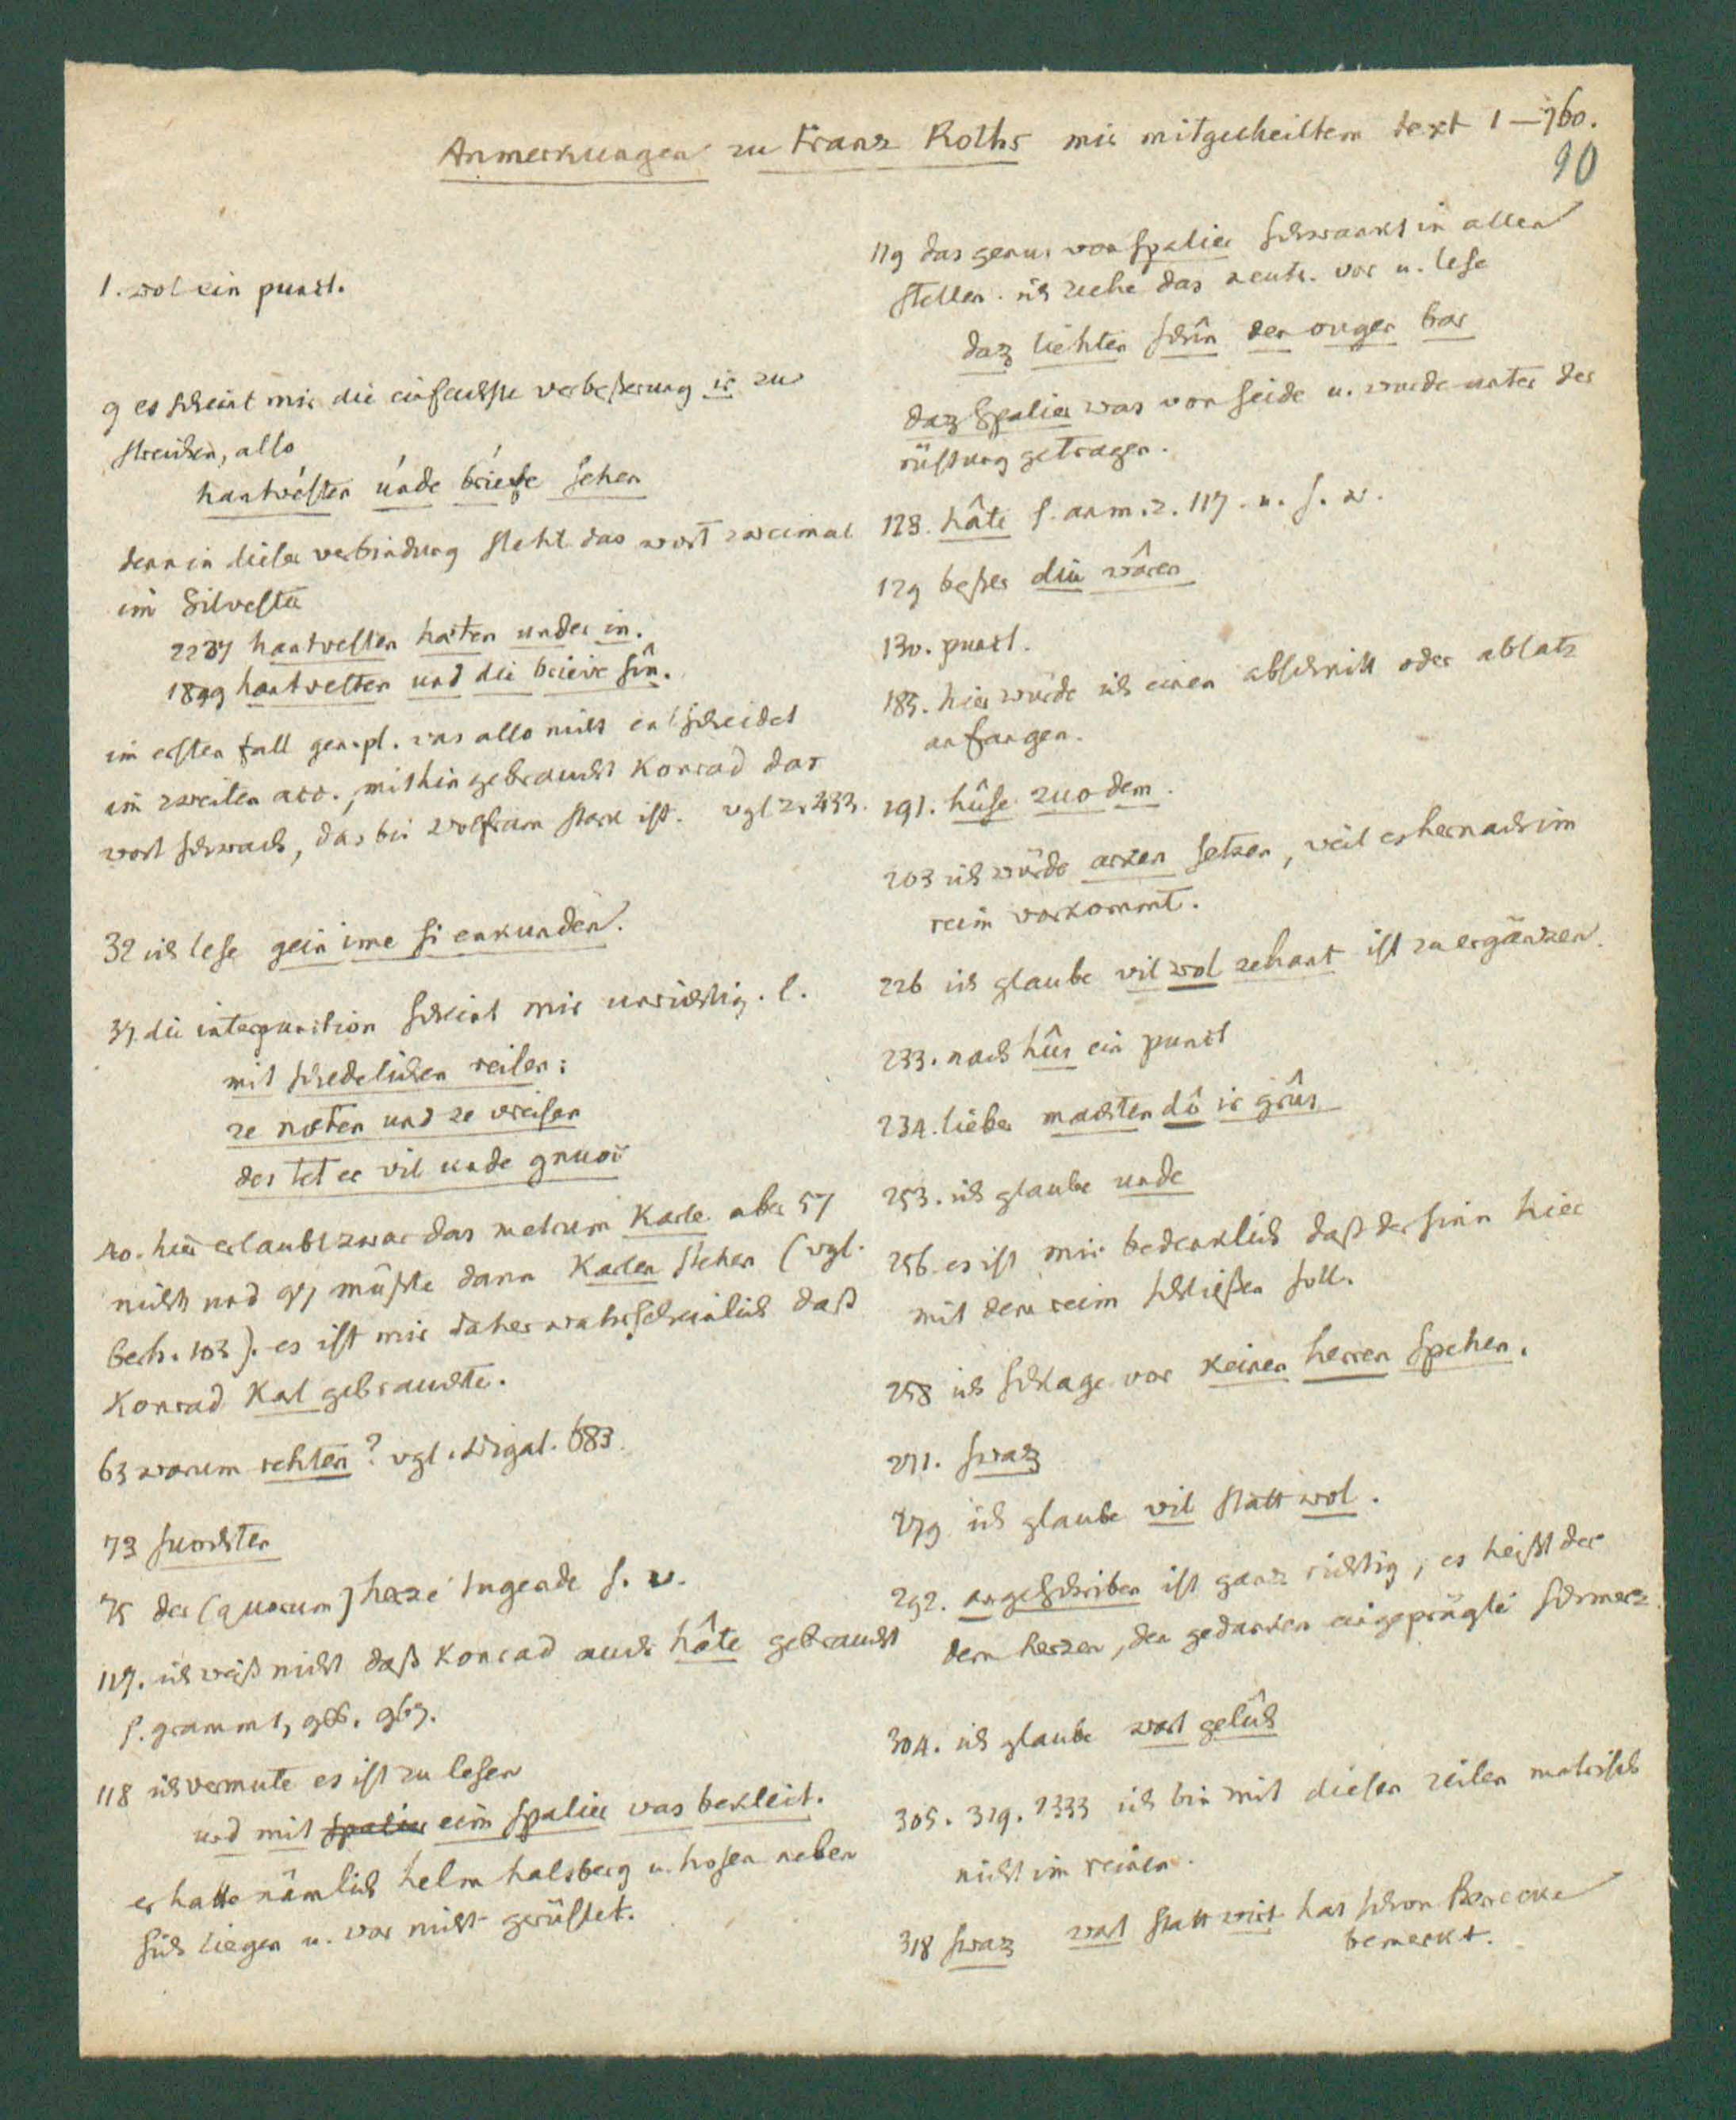 Anmerkungen zu Franz Roths mir mitgetheiltem text 1—760.
90
1. wol ein punct.
9 es scheint mir die einfachste verbeßerung ir zu
streichen, also
hantvésten únde bríeve sehen
denn in dieser verbindung steht das wort zweimal
im Silvester
2237 hantvesten hâten under in.
1899 hantvesten und die brieve sîn.
im ersten fall gen. pl. was also nicht entscheidet
im zweiten acc., mithin gebraucht Konrad das
wort schwach, das bei Wolfram stark ist. vgl z. 433.
32 ich lese gein ime si enkunden.
37. die interpunction scheint mir unrichtig. l.
mit schedelichen reisen:
ze nœten und ze vreisen
des tet er vil unde gnuoc
40. hier erlaubt zwar das metrum Karle aber 57
nicht und 97 müßte dann Karlen stehen (vgl.
berh. 103). es ist mir daher wahrscheinlich daß
Konrad Karl gebrauchte.
63 warum rehten? vgl. Wigal. 683.
73 suochten
75 der (quorum) herze tugende s. w.
117. ich weiß nicht daß Konrad auch hâte gebraucht
s. gramm 1, 966. 967.
118 ich vermute es ist zu lesen
und mit spalier eim spalier was bekleit.
er hatte nämlich helm halsberg u. hosen neben
sich liegen u. war nicht gerüstet.
119 das genus von spalier schwankt in allen
stellen. ich ziehe das neutr. vor u. lese
daz liehten schîn den ougen bar
daz Spalier was von seide u. wurde unter der
rüstung getragen.
123. hâte s. anm. z. 117. u. s. w.
129 beßer diu wâren
130. punct.
185. hier würde ich einen abschnitt oder absatz
anfangen.
191. hûse zuo dem.
203 ich würde arken setzen, weil es hernach im
reim vorkommt.
226 ich glaube vil wol zehant ist zu ergänzen.
233. nach hûs ein punct
234. lieber machten dô ir grûs
253. ich glaube unde
256. es ist mir bedenklich daß der sinn hier
mit dem reim schließen soll.
258 ich schlage vor keinen herren spehen.
271. swaz
279 ich glaube vil statt wol.
292. angeschriben ist ganz richtig, es heißt der
dem herzen, den gedanken eingeprägte schmerz.
304. ich glaube wart gelîch
305. 319. 2333 ich bin mit diesen zeilen metrisch
nicht im reinen.
318 swaz wart statt wirt hat schon Benecke
bemerkt.